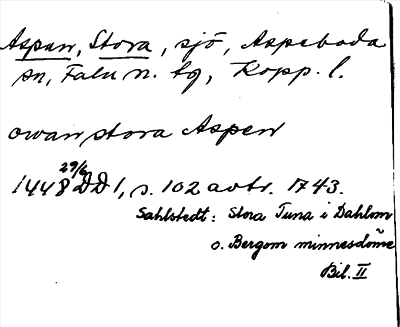 Aspen, Stora, sjö, Aspeboda
sn, Falu n. tg, Kopp. l.
owan stora Aspen
1448 29/6 DD 1, s. 102 avtr. 1743.
Sahlstedt: Stora Tuna i Dahlom
o. Bergom minnesdöme
Bil. II